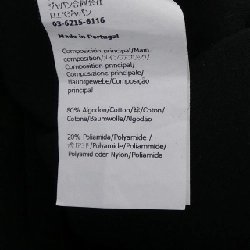 03-6215-6116
Made in Portugal
Composición principal/Main
composition/
Composition principal;
Composizione principale/
Hauptgewebe/Composição
principal
80% Algodon/Cotton/綿/Coton/
Cotone/Baumwolle/Algodao
20% Poliamida/Polyamide /
Polyamide/Poliammide/
Polyamid oder Nylon/Poliamide